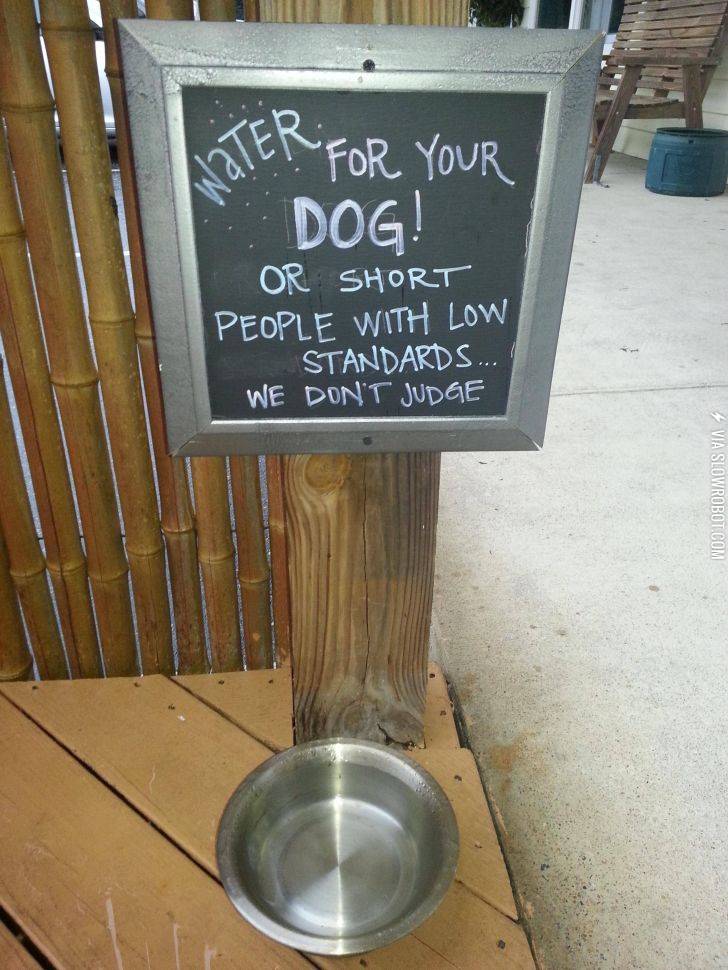 WaTER FOR YOUR
DOG!
OR SHORT
PEOPLE WITH LOW
STANDARDS...
WE DON'T JUDGE
VIA SLOWROBOT.COM